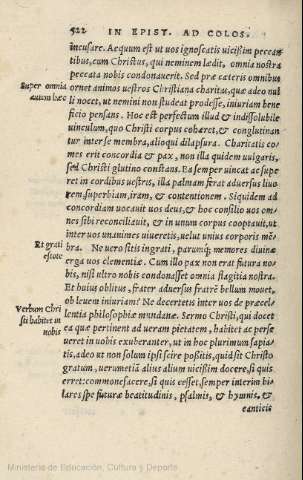 522 IN EPIST. AD COLOS.
incusare. Aequum est ut uos ignoscatis uicissim peccan
tibus, cum Christus, qui neminem lædit, omnia nostra
peccata nobis condonauerit. Sed præ cæteris omnibus
Super omnia
autem hæc
ornet animos uestros Christiana charitas, quæ adeo nul
li nocet, ut nemini non studeat prodesse, iniuriam bene
ficio pensans. Hoc est perfectum illud & indissolubile
uinculum, quo Christi corpus cohæret, & conglutinan
tur inter se membra, alioqui dilapsura. Charitatis co=
mes erit concordia & pax, non illa quidem uulgaris,
sed Christi glutino constans. Ea semper uincat ac supe
ret in cordibus uestris, illa palmam ferat aduersus liuo
rem, superbiam, iram, & contentionem. Siquidem ad
concordiam uocauit uos deus, & hoc consilio uos om=
nes sibi reconciliauit, & in unum corpus cooptauit, ut
inter uos unanimes uiueretis, uelut unius corporis mē=
Et grati
estote
bra. Ne uero sitis ingrati, parumq́; memores diuinæ
erga uos clementiæ. Cum illo pax non erat futura no=
bis, nisi ultro nobis condonasset omnia flagitia nostra.
Et huius oblitus, frater aduersus fratrē bellum mouet,
ob leuem iniuriam? Ne decertetis inter uos de præcel=
Verbum Chri
sti habitet in
nobis
lentia philosophiæ mundanæ. Sermo Christi, qui docet
ea quæ pertinent ad ueram pietatem, habitet ac perse
ueret in uobis exuberanter, ut in hoc plurimum sapia=
tis, adeo ut non solum ipsi scire possitis, quid sit Christo
gratum, uerumetiā alius alium uicissim docere, si quis
erret: commonefacere, si quis cesset, semper interim hi=
lares spe futuræ beatitudinis, psalmis, & hymnis, &
canticis
Ministerio de Educación, Cultura y Deporte